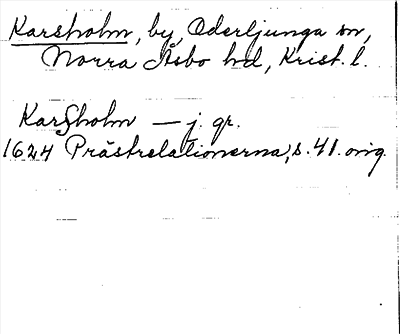 Karsholm, by, Oderljunga sn,
Norra Åsbo hd, Krist. l.
Karsholm — j. gr.
1624 Prästrelationerna, s. 41. orig.